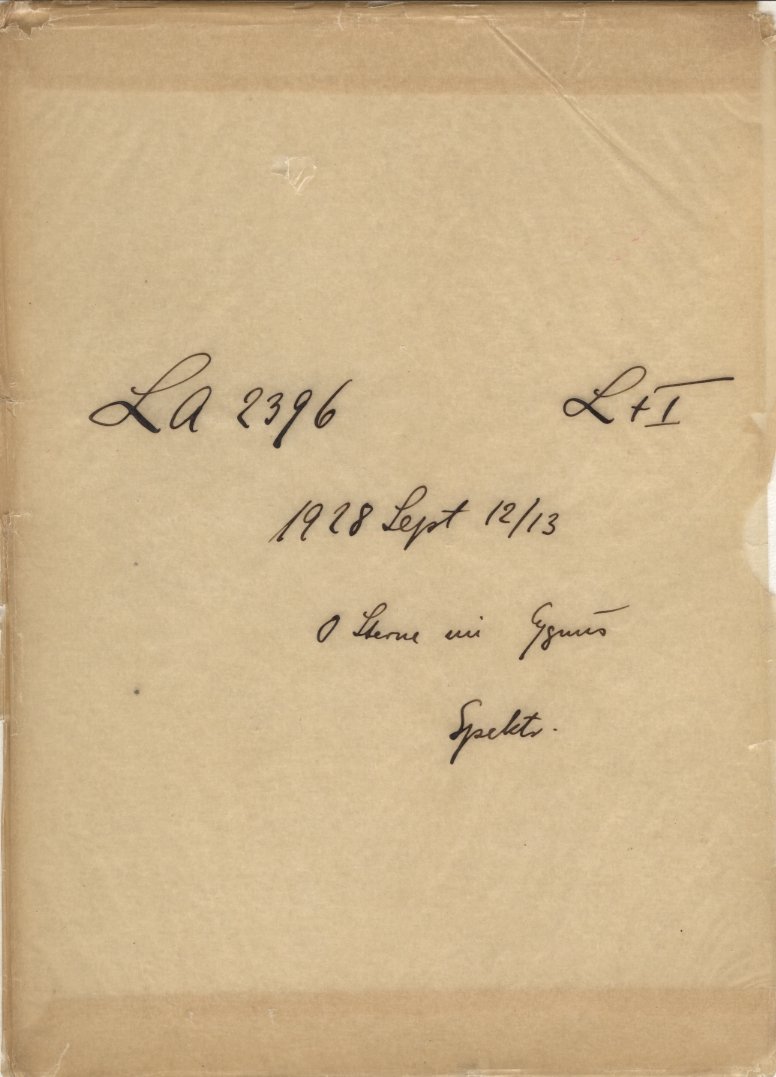 LA 2396 L+I
1928 Sept 12/13
O Sterne im Cygnus
Spektr.